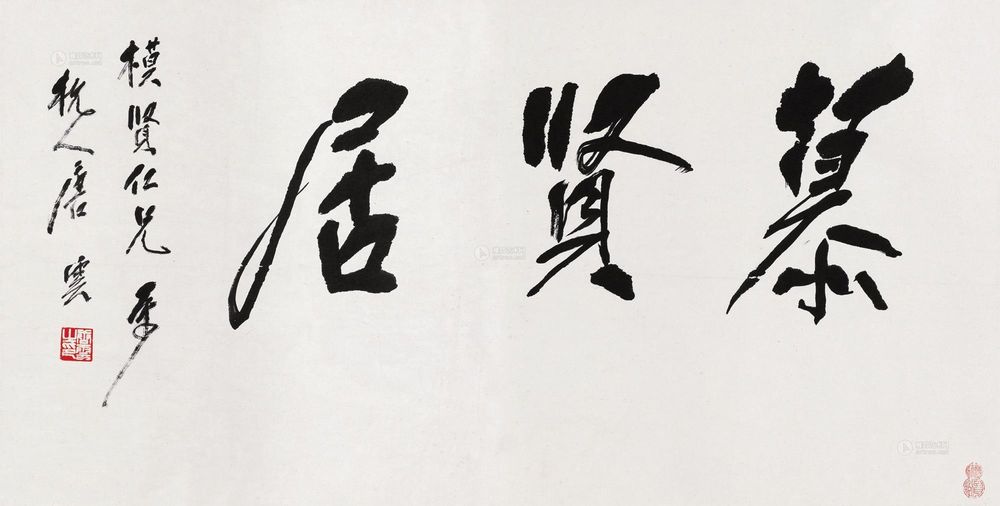 慕賢居
模賢仁兄 属
杭人唐雲